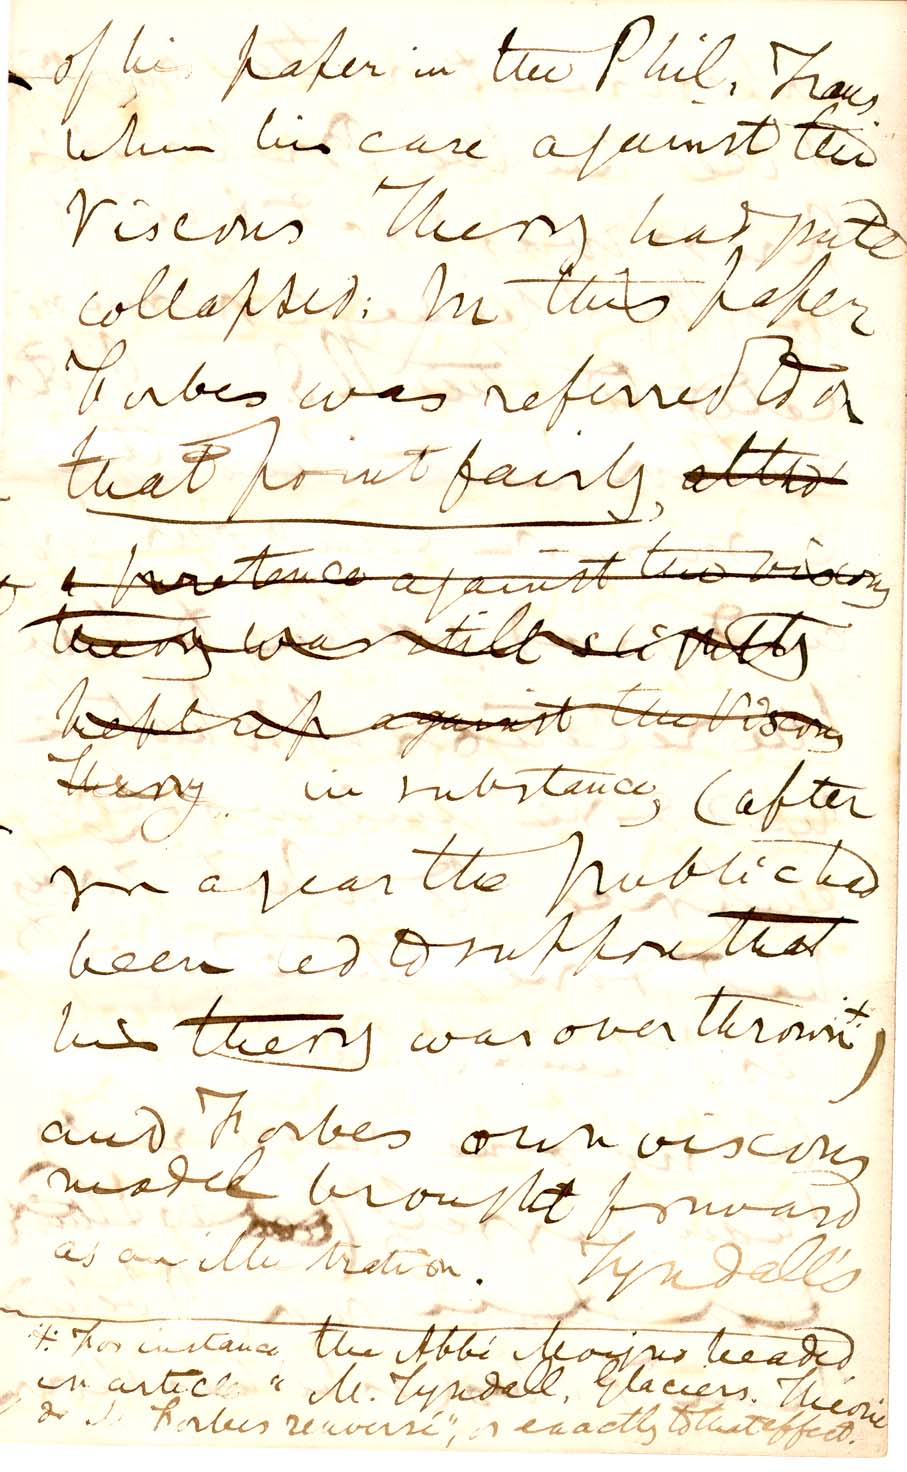 of his paper in the Phil. Trans
when his case against the
Viscous Theory had quite
collapsed: In this paper
Forbes was referred to on
that point fairly, altho'
a pretence against the viscous
theory was still slightly
kept up against the Viscous
Theory in substance, (after
for a year the public had
been led to suppose that
his theory was overthrown +)
and Forbes own viscous
model brought forward
as an illustration. Tyndall's
+: For instance the Abbé Moigno headed
an article " M. Tyndall, Glaciers. Théorie
de M. Forbes renversé", or exactly to that effect.